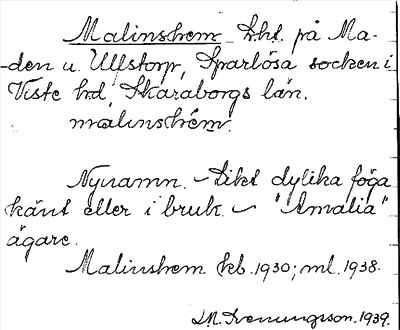 Malinshem lht. på Ma-
-den u. Ullstorp, Sparlösa socken i
Viste hd, Skaraborgs län.
malinshém.
Nynamn. – Likt dylika föga
känt eller i bruk – "Amalia"
ägare.
Malinshem kb. 1930; ml. 1938.
1939.